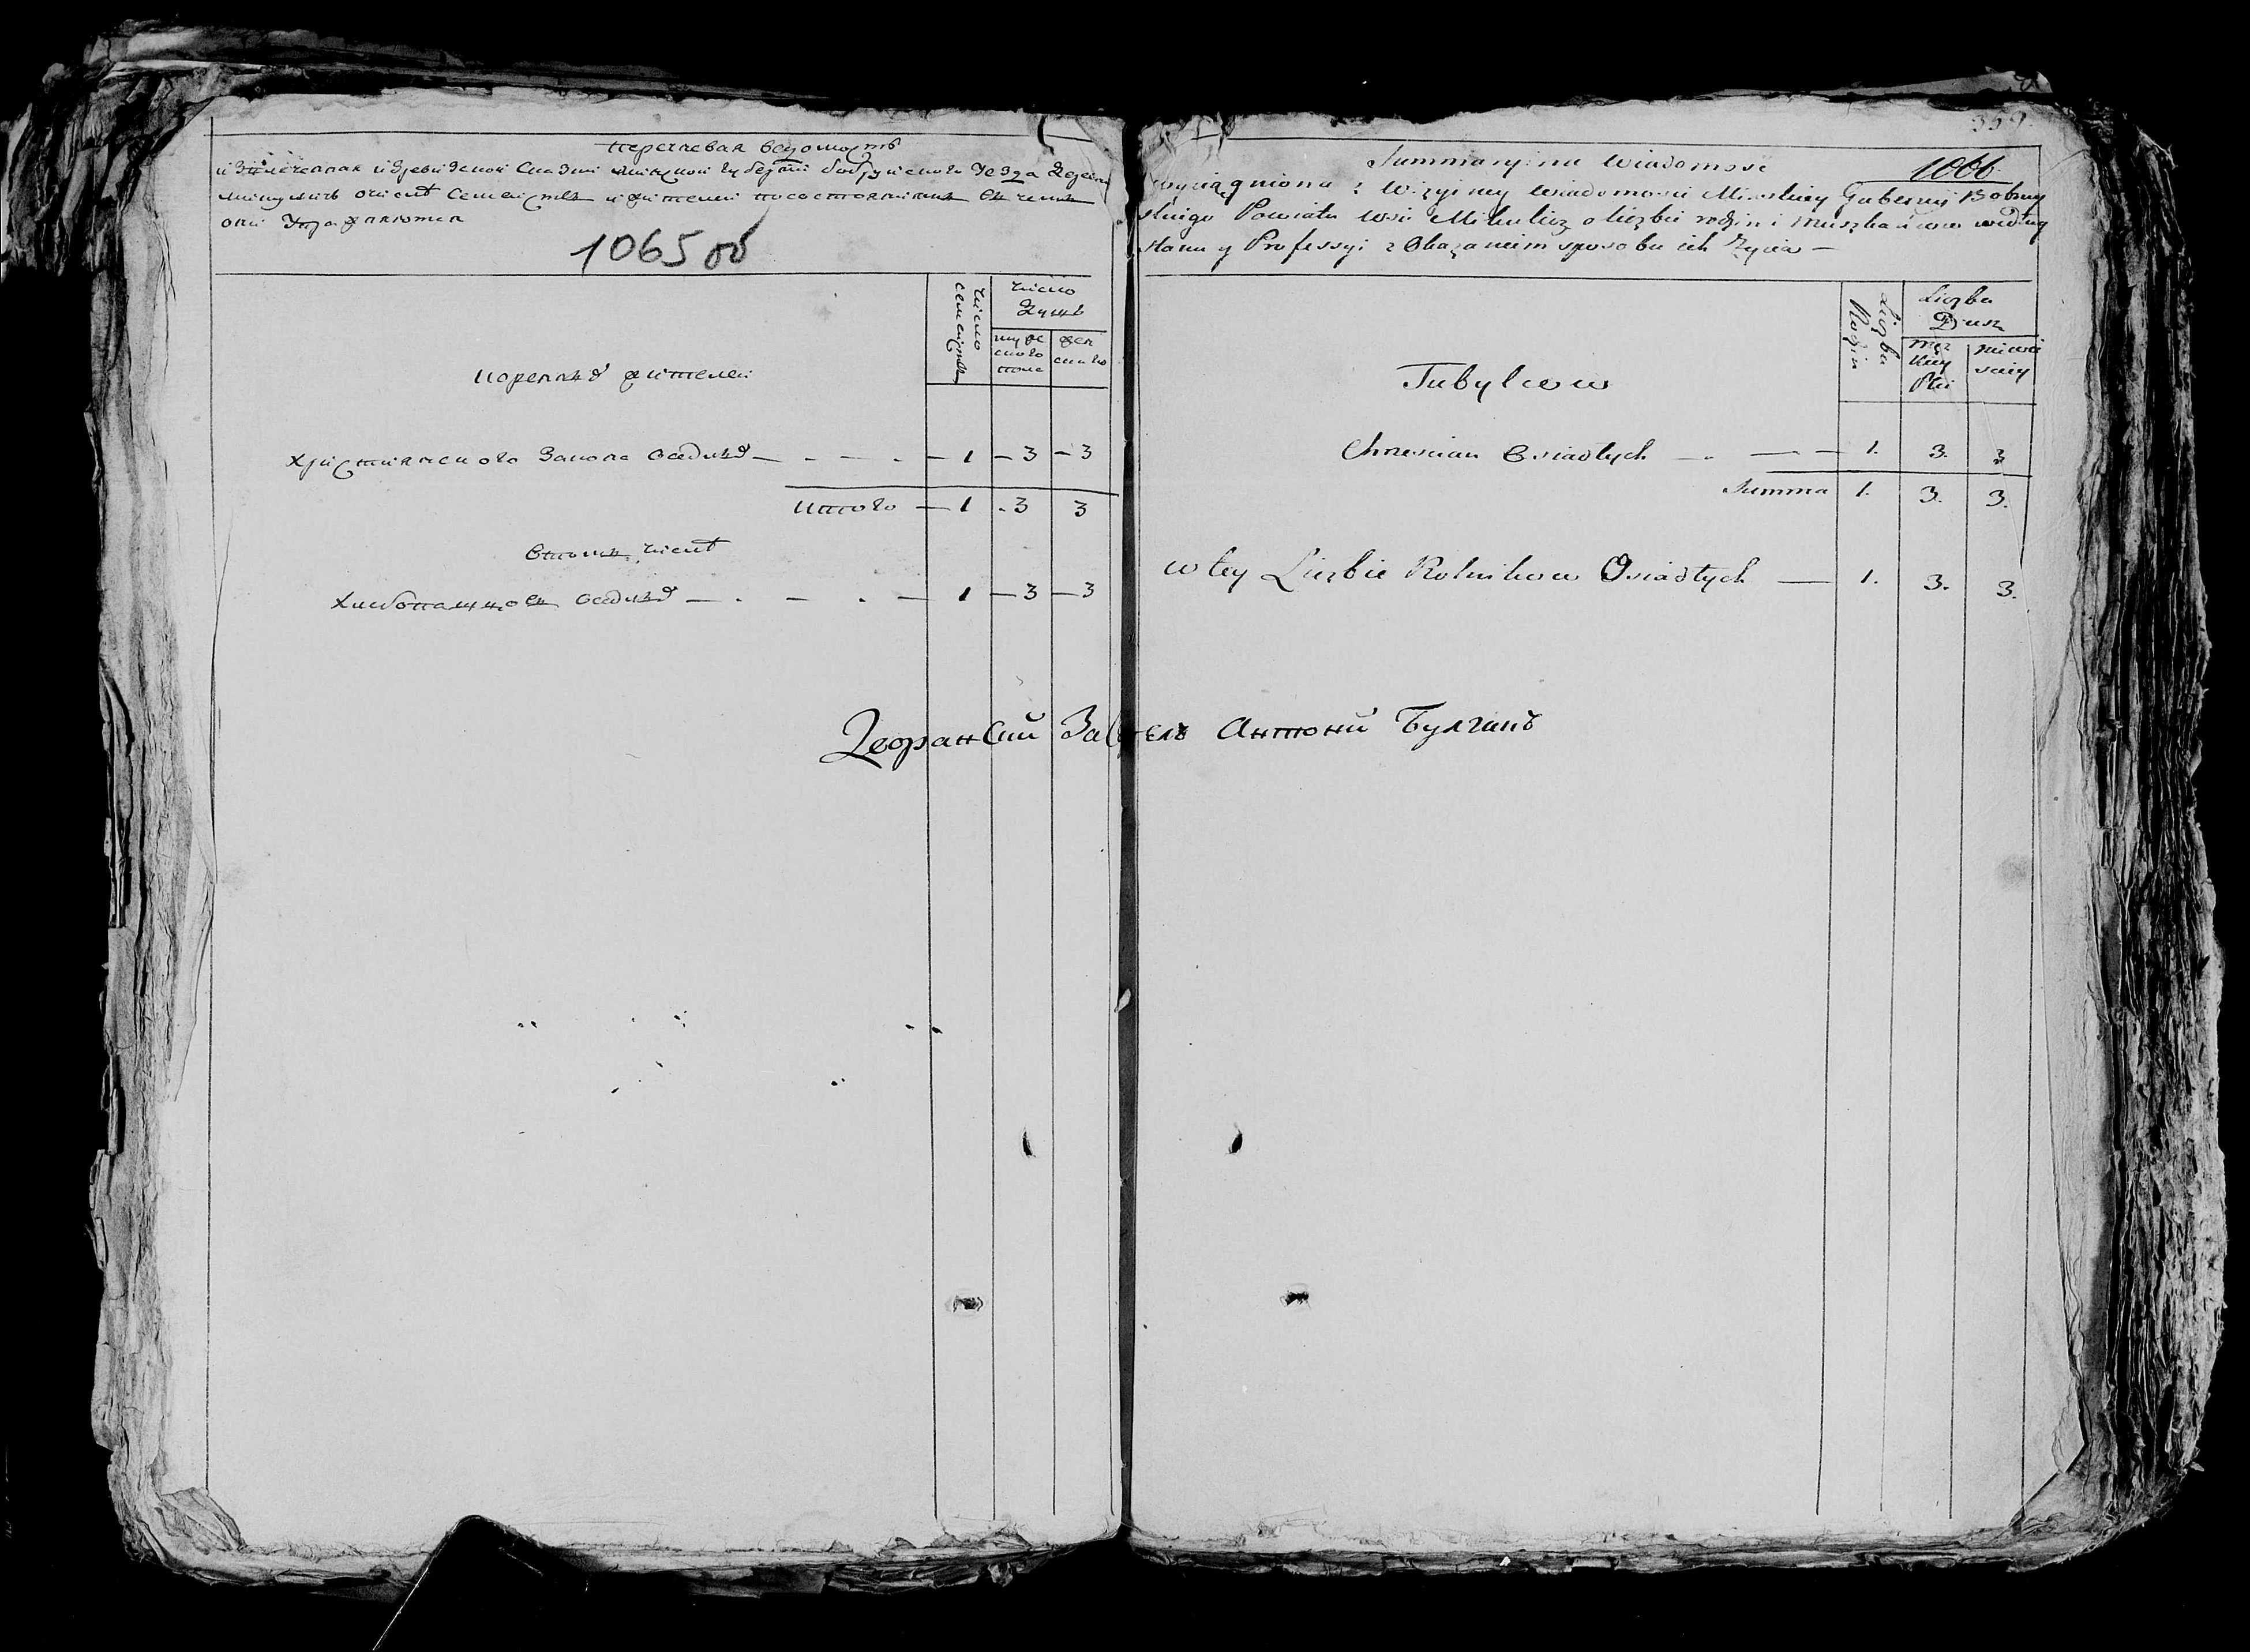 Перечневая ведомость
извлеченная изревизской сказки минской губернии бобруйского уезда деревни
микуличь очисле семействъ ижителей посостояниямъ въ чемъ
они упражняются
1065 об
число семействъ
число душъ
мужеского пола
женского
коренныхъ жителей
Християнского закона оседлыхъ — 1 — 3 — 3
итого — 1 . 3 3
втомъ числе
хлебопашцовъ оседлыхъ — 1 — 3 — 3
359
Summaryina Wiadomość
1066
wyciągniona z Wizyiney wiadomosci Minskiey Gubernii Bobruy
skiego Powiatu wsi Mikulicz o liczbie rodzin i mieszkancow według
stanu y Professyi z Okazaniem sposobu ich Życia —
Liczba Rodzin
Liczba Dusz
Męz kiey Płci
niewie sciey
Tubylcow
Chrzescian Osiadłych — 1. 3. 3
Summa 1. 3. 3.
w tey Liczbie Rolnikow Osiadłych — 1. 3. 3.
Антоний Булгакъ